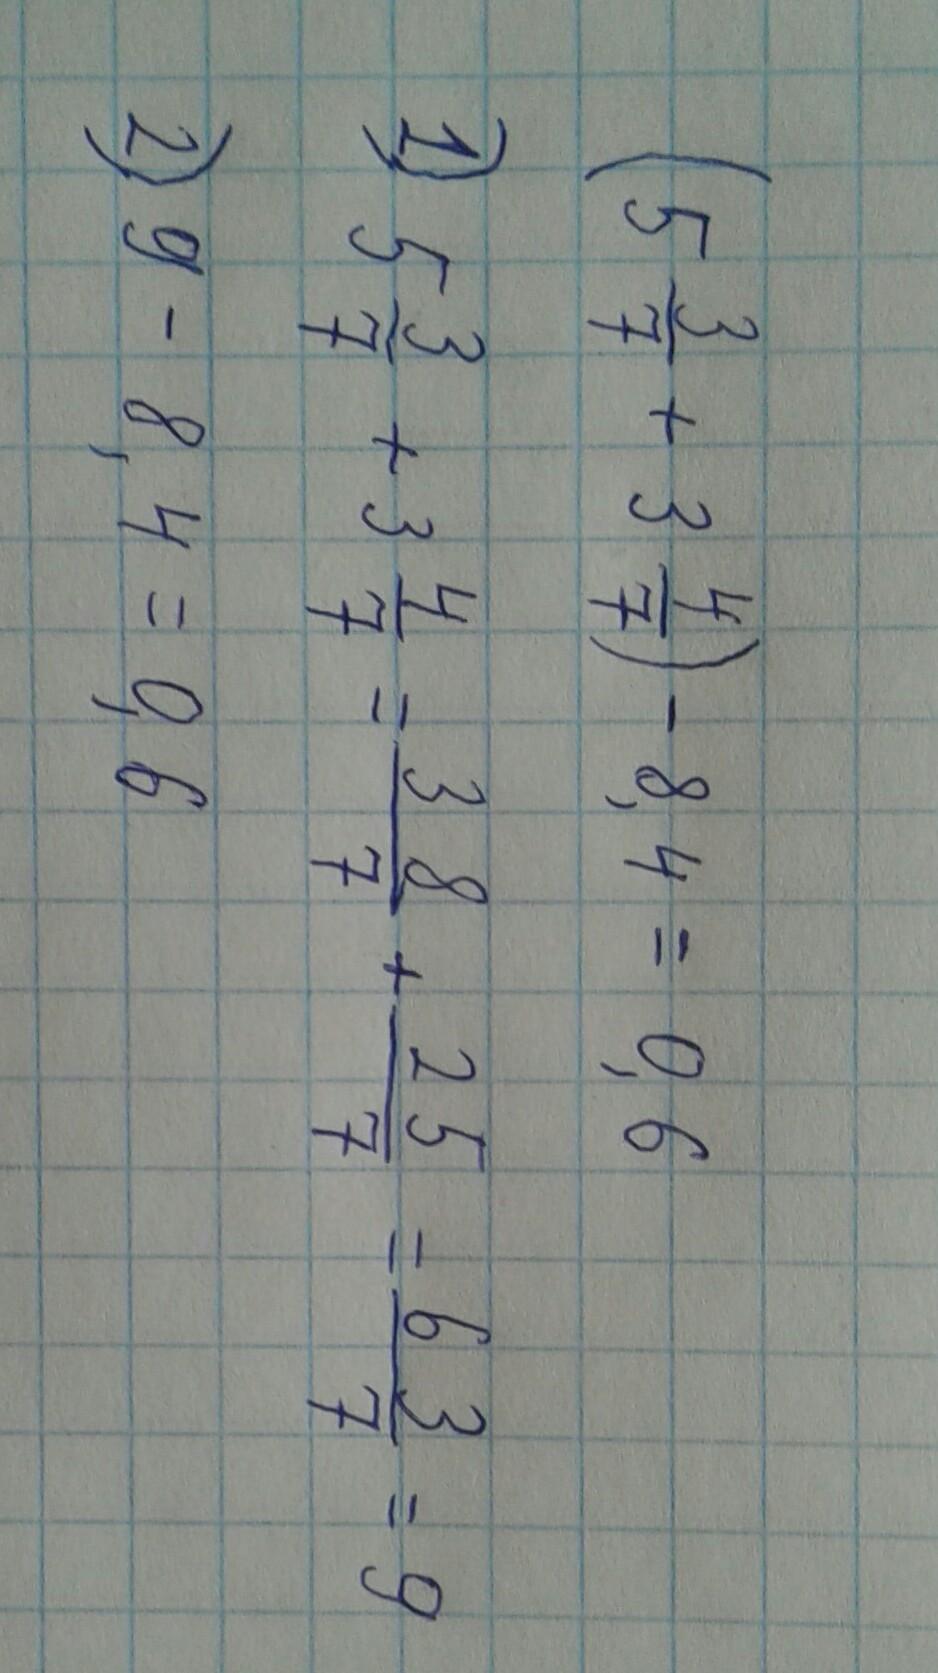 (5 3/7 + 3 4/7) - 8,4 = 0,6
1) 5 3/7 + 3 4/7 = 38/7 + 25/7 = 63/7 = 9
2) 9 - 8,4 = 0,6